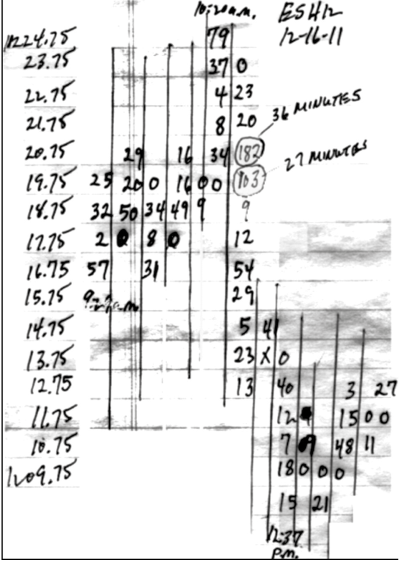 10:20 a.m. ES412
12-16-11
1224.75 79
23.75 37 0
22.75 4 23
21.75 8 20
36 MINUTES
20.75 29 16 34 182
27 MINUTES
19.75 25 20 0 16 0 0 103
18.75 32 50 34 49 9 9
17.75 2 0 8 0 12
16.75 57 31 54
15.75 29
14.75 5 41
13.75 23 X 0
12.75 13 40 3 27
11.75 12 15 0 0
10.75 7 48 11
1209.75 18 0 0 0
15 21
12:37
p.m.